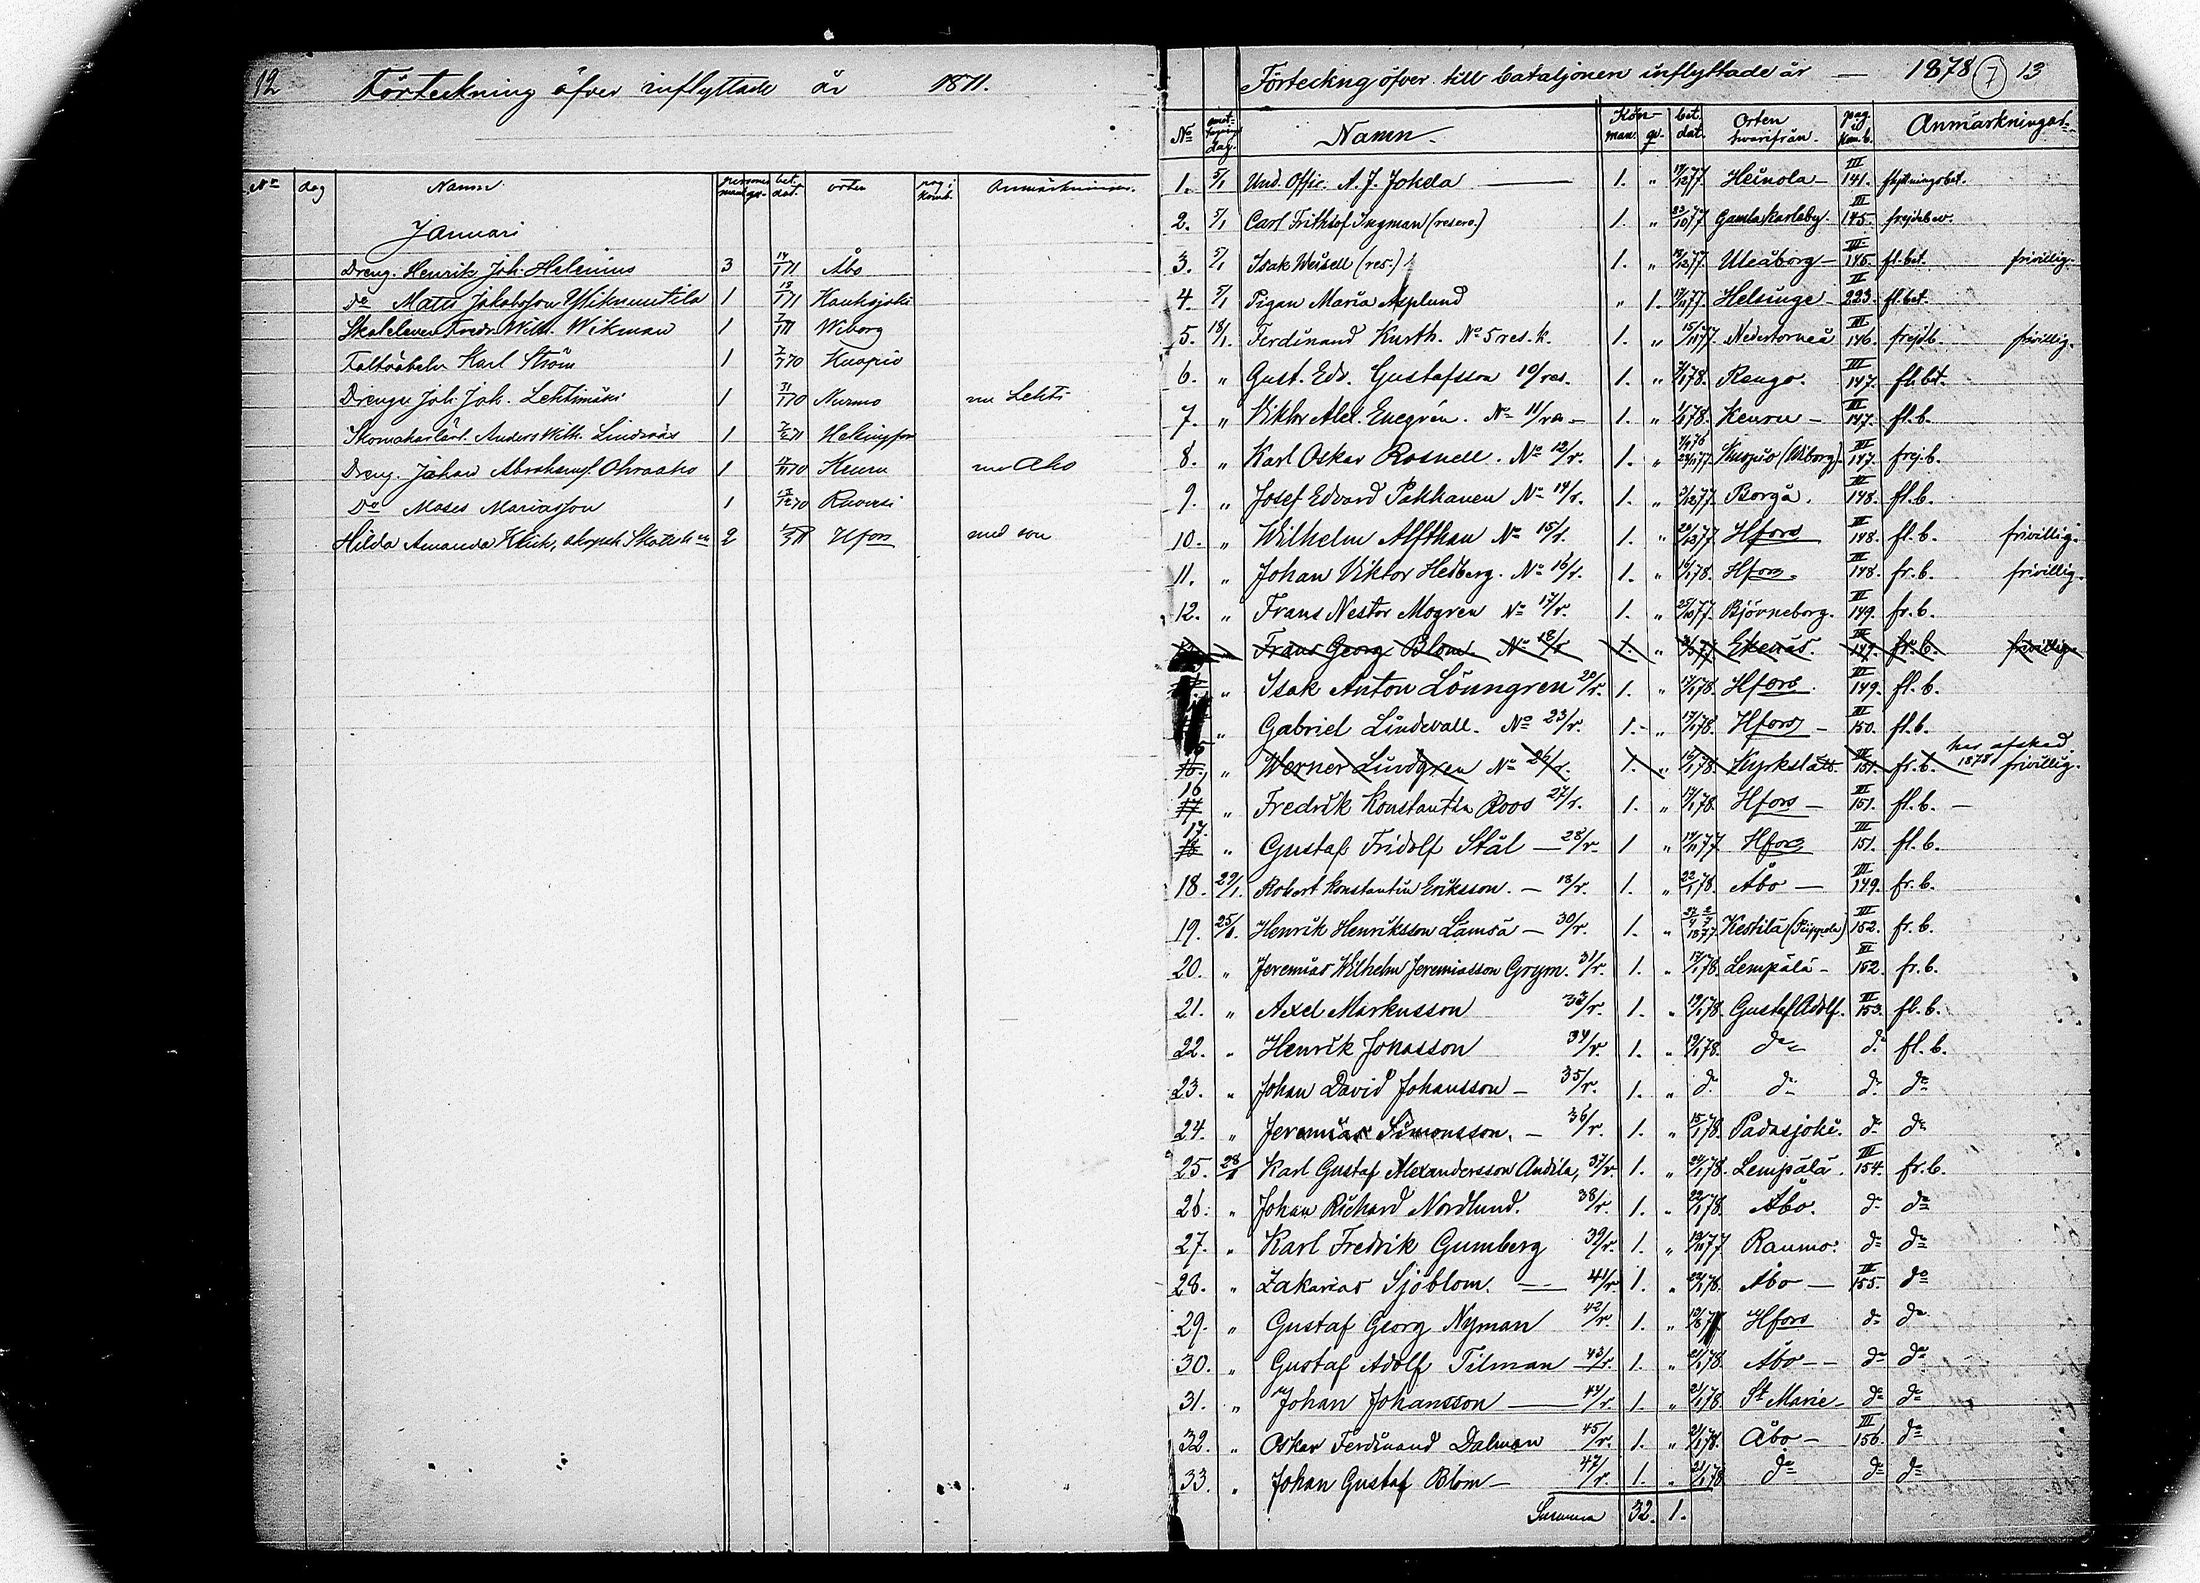 12 Förteckning öfver inflyttade år 1871.
No dag Namn personer mank. qv. bet. dat. orten pag. i komb. Anmärkningar.
Januari
Dreng. Henrik Joh. Helenius 3 14/1 71 Åbo
Do Matts Jakobsson 1 13/1 71 Kauhajoki
Fredr. Wilh. Wikman 1 Wiborg
Karl Ström 1 70 Kuopio
Drengen Joh. Joh. Lehtimäki 1 31/1 70 Nurmo nu Lehti
Anders Wilh. Lindroos 1 71 Helsingfors
Dreng. Johan Abrahamss. 1 70 Keuru nu Aho
Do Moses Mariasson 1 70 Ruovesi
Hilda Amanda 2 Hfors med son
Förteckng öfver till bataljonen inflyttade år — 1878 7 13
No dag. Namn. Kön man. qv. bet. dat. Orten hvarifrån. pag. Anmärkningar.
1. 5/1 Und. Offic. A. J. Johela — 1. „ 77 Heinola — III 141. flyttningsbet.
2. 5/1 Carl Frithiof Ingman (reserv.) 1. „ 23/10 77 Gamlakarleby. III 145. frejdebev.
3. 5/1 Isak Weisell (res.) 1. „ 77 Uleåborg — III 145. fl. bet. frivillig.
4. 5/1 Pigan Maria Asplund „ 1. 77 Helsinge — II 223. fl. bet.
5. 18/1 Ferdinand Kurth. No 5 res. k. 1. „ 77 Nedertorneå III 146. frejdb. frivillig.
6. „ Gust. Edv. Gustafsson 10/res. 1. „ 78. Rengo. III 147. fl. bet.
7. „ Viktor Alex. Enegrén. No 11/res — 1. „ 78. Keuru — III 147. fl. b.
8. „ Karl Oskar Rosnell. No 12/r. 1. „ 77. Kuopio (Wiborg). III 147. frej. b.
9. „ Josef Edvard Pakkanen No 14/r. 1. „ 77. Borgå. III 148. fl. b.
10. „ Wilhelm Alfthan No 15/r. 1. „ 77 Hfors III 148. fl. b. frivillig.
11. „ Johan Viktor Hedberg. No 16/r. 1. „ 78. Hfors. III 148. fr. b. frivillig.
12. „ Frans Nestor Mogren No 17/r. 1. „ 25/10 77. Björneborg. III 149. fr. b.
Frans Georg Blom. No 18/r 1. „ 77 Ekenäs. III 149. fr. b. frivillig
„ Isak Anton Lönngren 20/r. 1. „ 17/1 78. Hfors. III 149. fl. b.
„ Gabriel Lindevall. No 23/r. 1. — „ 17/1 78. Hfors — III 150. fl. b.
has afsked.
„ Werner Lindgren No 26/r. 1. „ 16/1 78. Kyrkslätt. III 151. fr. b. 1878 frivillig.
16 17 „ Fredrik Konstantin Roos 27/r. 1. „ 17/1 78. Hfors — III 151. fl. b. —
17. 18 „ Gustaf Fridolf Stål — 28/r. 1 „ 77 Hfors III 151. fl. b.
18. 22/1. Robert Konstantin Eriksson. — 13/r. 1. „ 22/1 78. Åbo — III 149. fr. b.
19. 25/1. Henrik Henriksson Lämsä — 30/r. 1. „ 1877 Kestilä (Piippola) III 152. fr. b.
20. „ Jeremias Wilhelm Jeremiasson Grym. 31/r. 1. „ 78. Lempälä — III 152. fr. b.
21. „ Axel Markusson 33/r. 1. „ 19/1 78. Gustaf Adolf. III 153. fl. b.
22. „ Henrik Jonasson 34/r. 1. „ 19/1 78. do do fl. b.
23. „ Johan David Johansson — 35/r. 1. „ do do do do
24. „ Jeremias Simonsson. — 36/r. 1. „ 15/1 78. Padasjoki. do do
25. 28/1 Karl Gustaf Alexandersson Andila, 37/r. 1. „ 24/1 78. Lempälä. III 154. fr. b.
26. „ Johan Richard Nordlund. 38/r. 1. „ 22/1 78. Åbo. do do
27. „ Karl Fredrik Gumberg 39/r. 1. „ 77 Raumo. do do
28. „ Zakarias Sjöblom. — 41/r. 1. „ 22/1 78. Åbo — III 155. do
29. „ Gustaf Georg Nyman 42/r. 1. „ Hfors do do
30. „ Gustaf Adolf Tilman 43/r. 1. „ 21/1 78. Åbo — do do
31. „ Johan Johansson — 44/r. 1. „ 21/1 78 St Marie — do do
32. „ Oskar Ferdinand Dalman 45/r. 1. „ 21/1 78. Åbo — III 156. do
33. „ Johan Gustaf Blom — 47/r. 1. „ 21/1 78 do do do
Summa 32. 1.